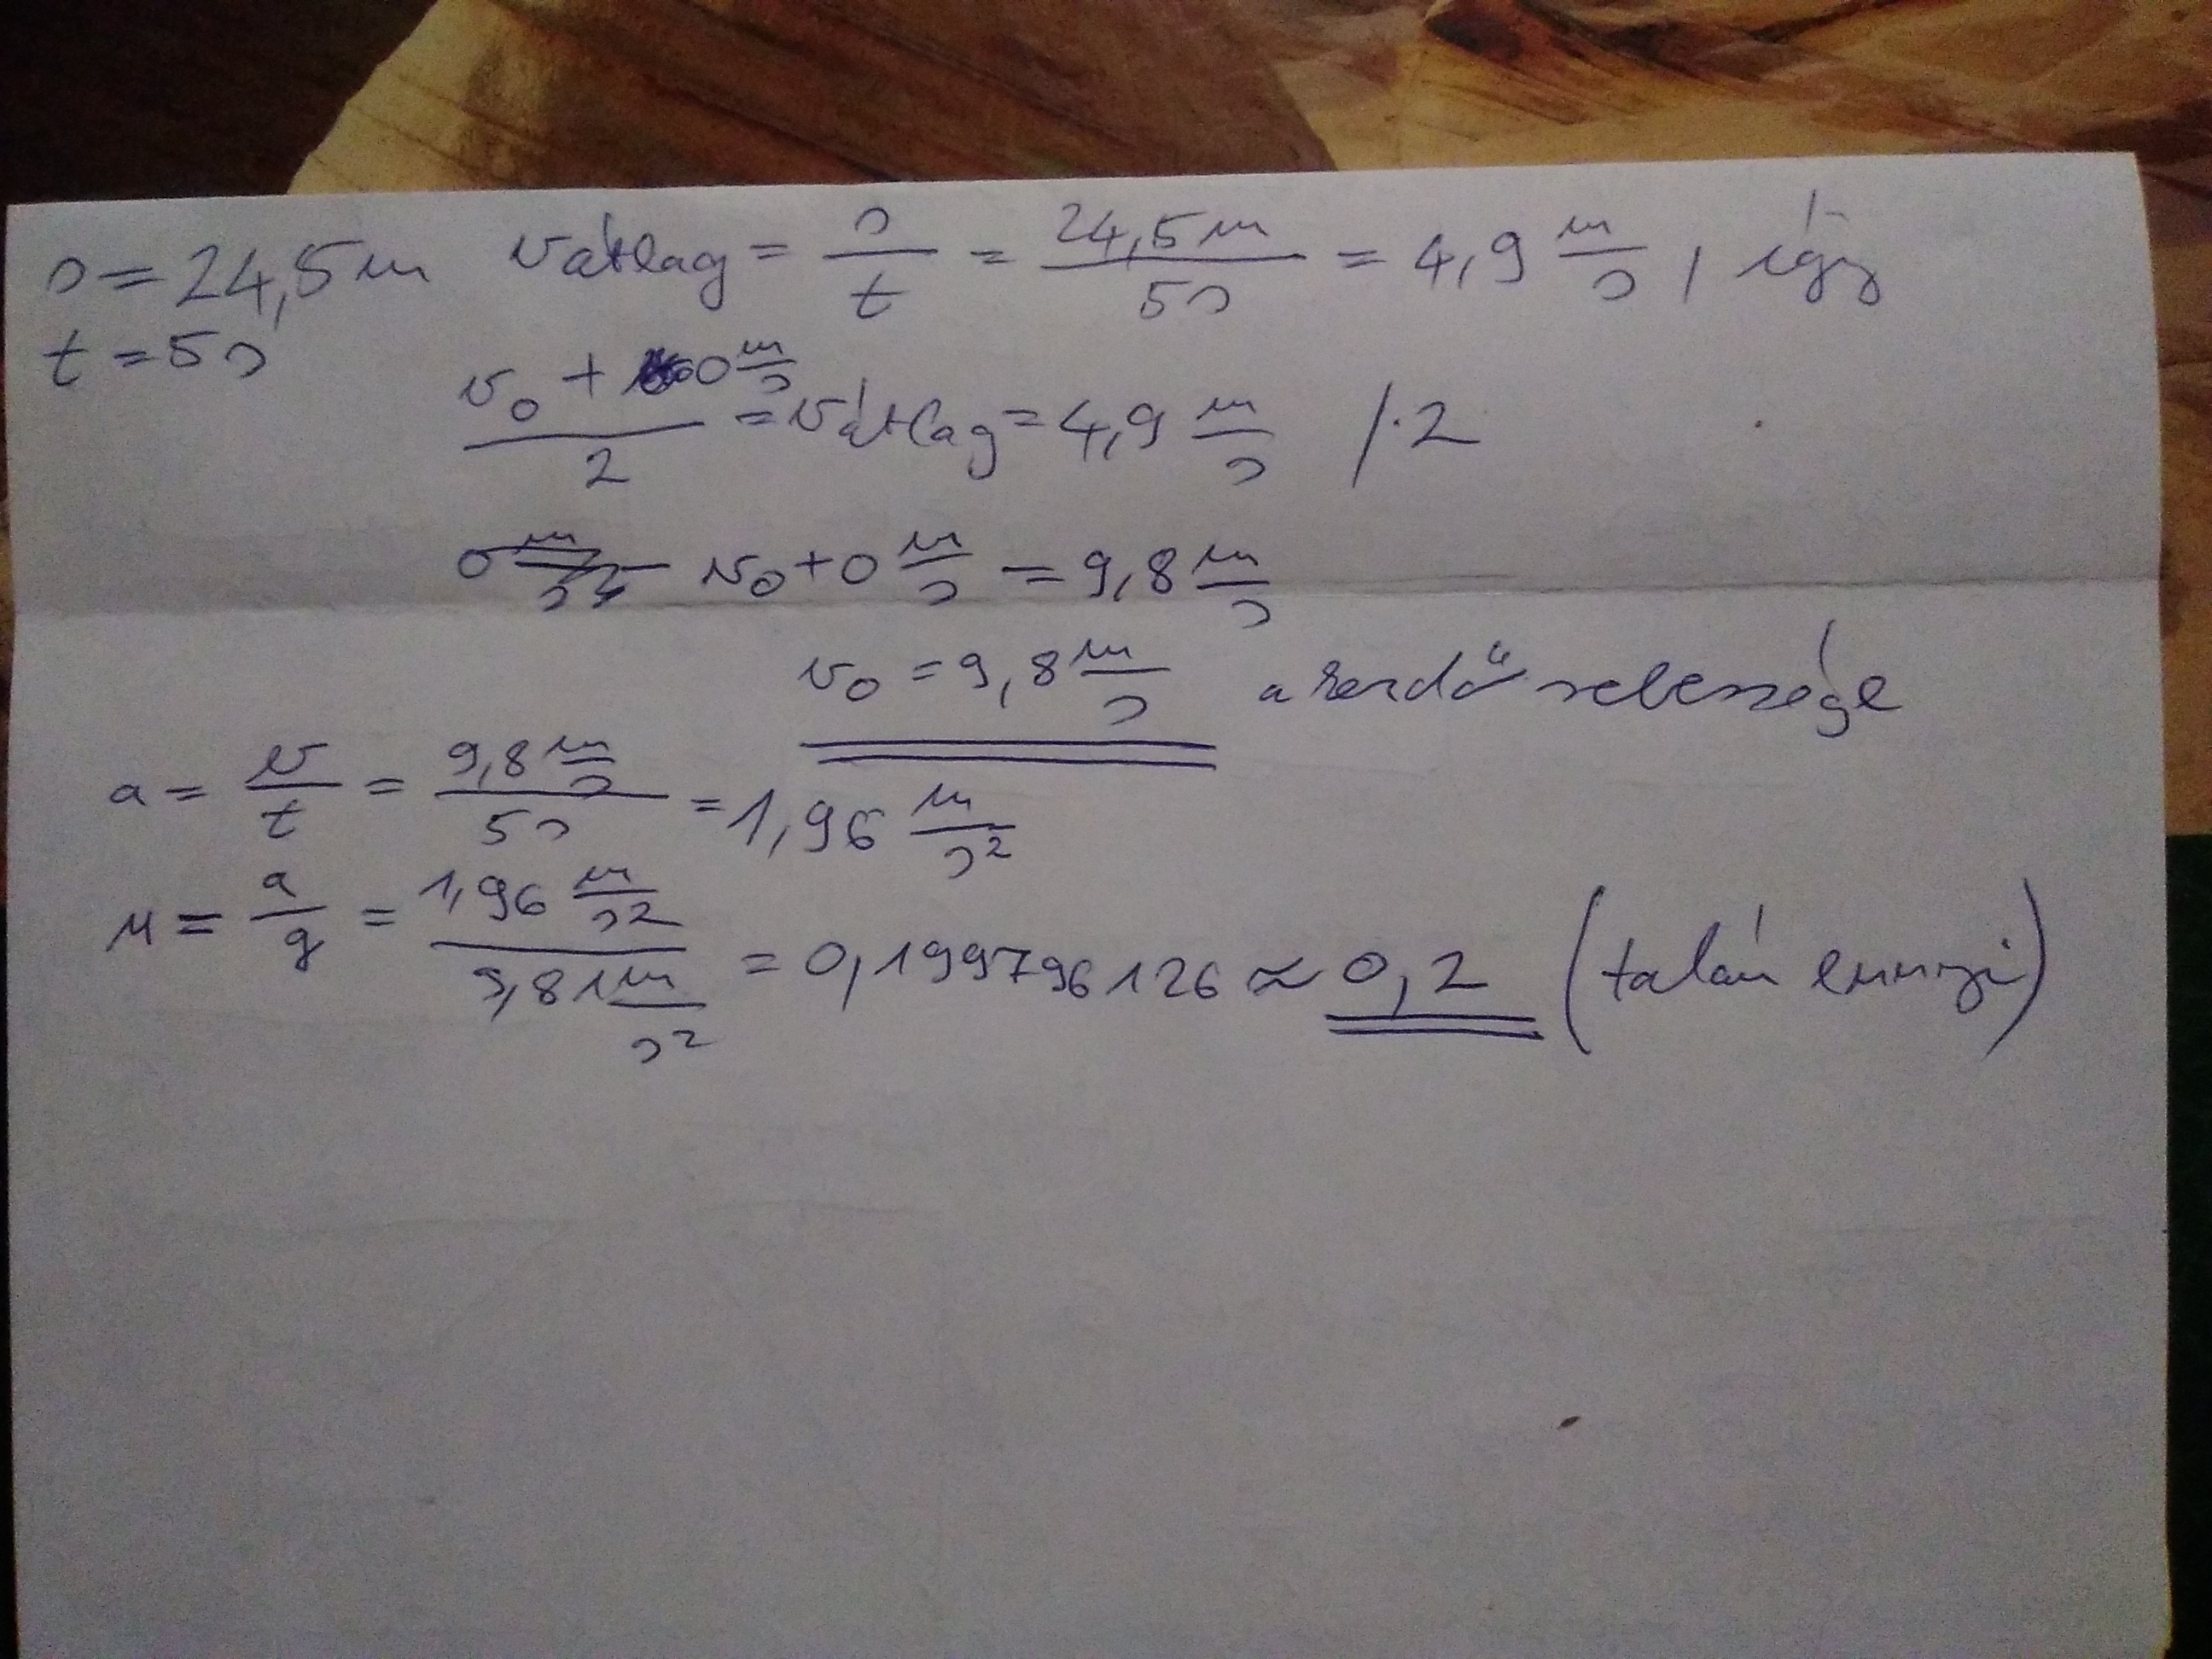 s = 24,5 m   vátlag = s/t = 24,5 m / 5 s = 4,9 m/s, így
t = 5 s
(v₀ + 0 m/s) / 2 = vátlag = 4,9 m/s   /·2
v₀ + 0 m/s = 9,8 m/s
v₀ = 9,8 m/s   a kezdősebessége
a = v/t = 9,8 m/s / 5 s = 1,96 m/s²
μ = a/g = 1,96 m/s² / 9,81 m/s² = 0,199796126 ≈ 0,2 (talán ennyi)